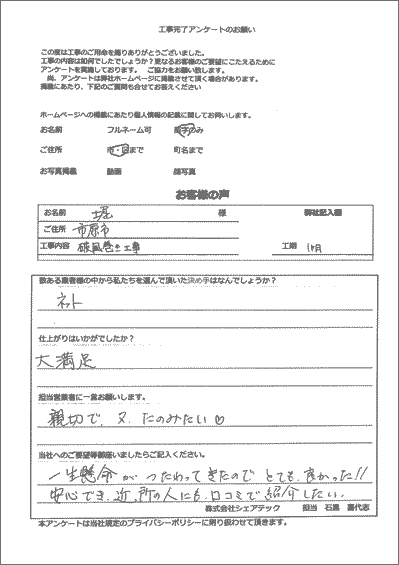 工事完了アンケートのお願い
この度は工事のご用命を賜りありがとうございました。
工事の内容は如何でしたでしょうか?更なるお客様のご要望にこたえるために
アンケートを実施しております。 ご協力をお願い致します。
尚、アンケートは弊社ホームページに掲載させて頂く場合があります。
掲載にあたり、下記のご質問も合せてお答えください
ホームページへの掲載にあたり個人情報の記載に関してお伺いします。
お名前 フルネーム可 苗字のみ
ご住所 市・区まで 町名まで
お写真掲載 動画 顔写真
お客様の声
お名前 堀 様 弊社記入欄
ご住所 市原市
工事内容 破風巻き工事 工期 1ヶ月
数ある業者様の中から私たちを選んで頂いた決め手はなんでしょうか?
ネット
仕上がりはいかがでしたか?
大満足
担当営業者に一言お願いします。
親切で、又、たのみたい♡
当社へのご要望等御座いましたらご記入ください。
一生懸命がつたわってきたのでとても良かった!!
安心でき、近所の人にも、口コミで紹介したい。
株式会社シェアテック 担当 石黒 喜代志
本アンケートは当社規定のプライバシーポリシーに則り扱わせて頂きます。